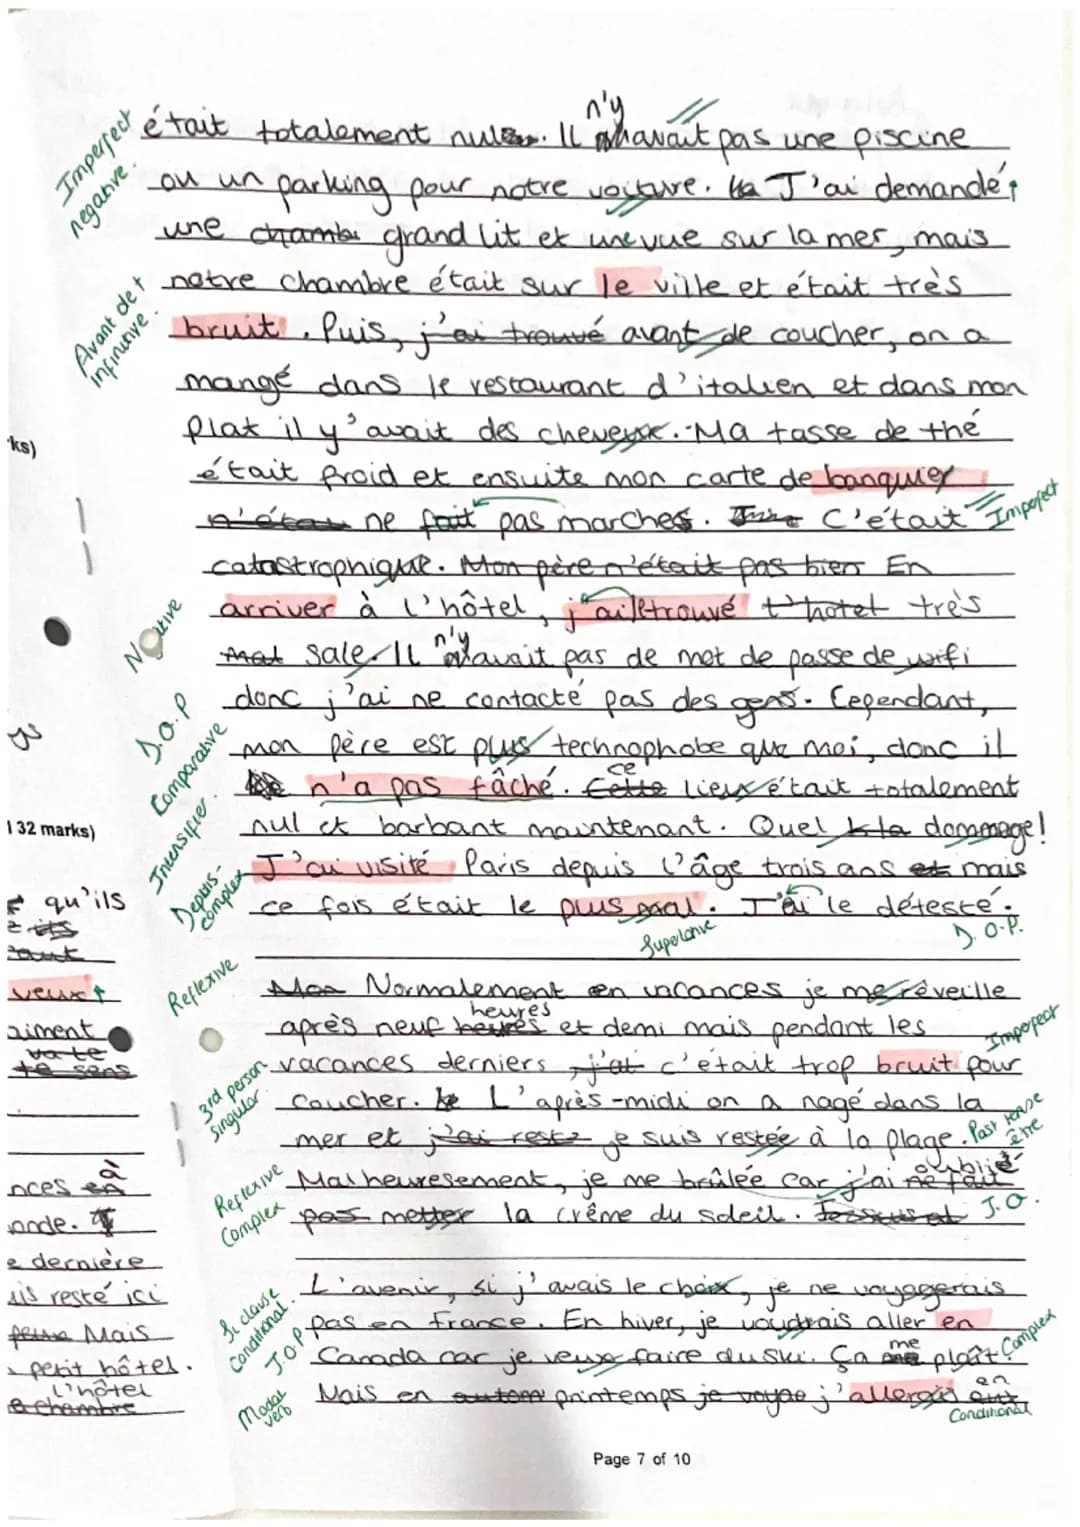 était totalement nul. Il n'y avait pas une piscine
ou un parking pour notre voiture. J'ai demandé
une chamb grand lit et une vue sur la mer, mais
notre chambre était sur le ville et était très
bruit. Puis, j'ai trouvé avant de coucher, on a
mangé dans le restaurant d'italien et dans mon
plat il y'avait des cheveux. Ma tasse de thé
était froid et ensuite mon carte de banquier
n'était ne fait pas marches. C'était
catastrophique. Mon père n'était pas bien En
arriver à l'hôtel, j'ai le trouvé l'hotel très
sale. Il n'y avait pas de mot de passe de wifi
donc j'ai ne contacté pas des gens. Cependant,
mon père est plus technophobe que moi, donc il
n'a pas fâché. Cette ce lieux était totalement
nul et barbant maintenant. Quel dommage!
J'ai visité Paris depuis l'âge trois ans et mais
ce fois était le plus mal. J'ai le détesté.
Mon Normalement en vacances je me réveille
après neuf heures heures et demi mais pendant les
vacances derniers j'ai c'était trop bruit pour
coucher. L'après-midi on a nagé dans la
mer et j'ai reste je suis restée à la plage.
Malheuresement, je me brûlée car j'ai ne fait oublié
pas metter la crême du soleil.
L'avenir, si j'avais le choix, je ne voyagerais
pas en France. En hiver, je voudrais aller en
Canada car je veux faire du ski. Ça me plaît.
Mais en printemps je voyage j'allerais en
Imperfect
negative.
Avant de +
infinitive.
Imperfect
D.O.P
Comparative
Intensifier
Depuis-
complex
Superlative
D.O.P.
Reflexive
Imperfect
3rd person
singular
Past tense
être
Reflexive
Complex
J.O.
Si clause
Conditional.
J.O.P.
Complex
Modal
verb
Conditional
ks)
32 marks)
qu'ils
veux
aiment
va te
te sens
nces en à
onde.
dernière
uis resté ici
Mais
petit hôtel.
l'hôtel
chambre
Page 7 of 10